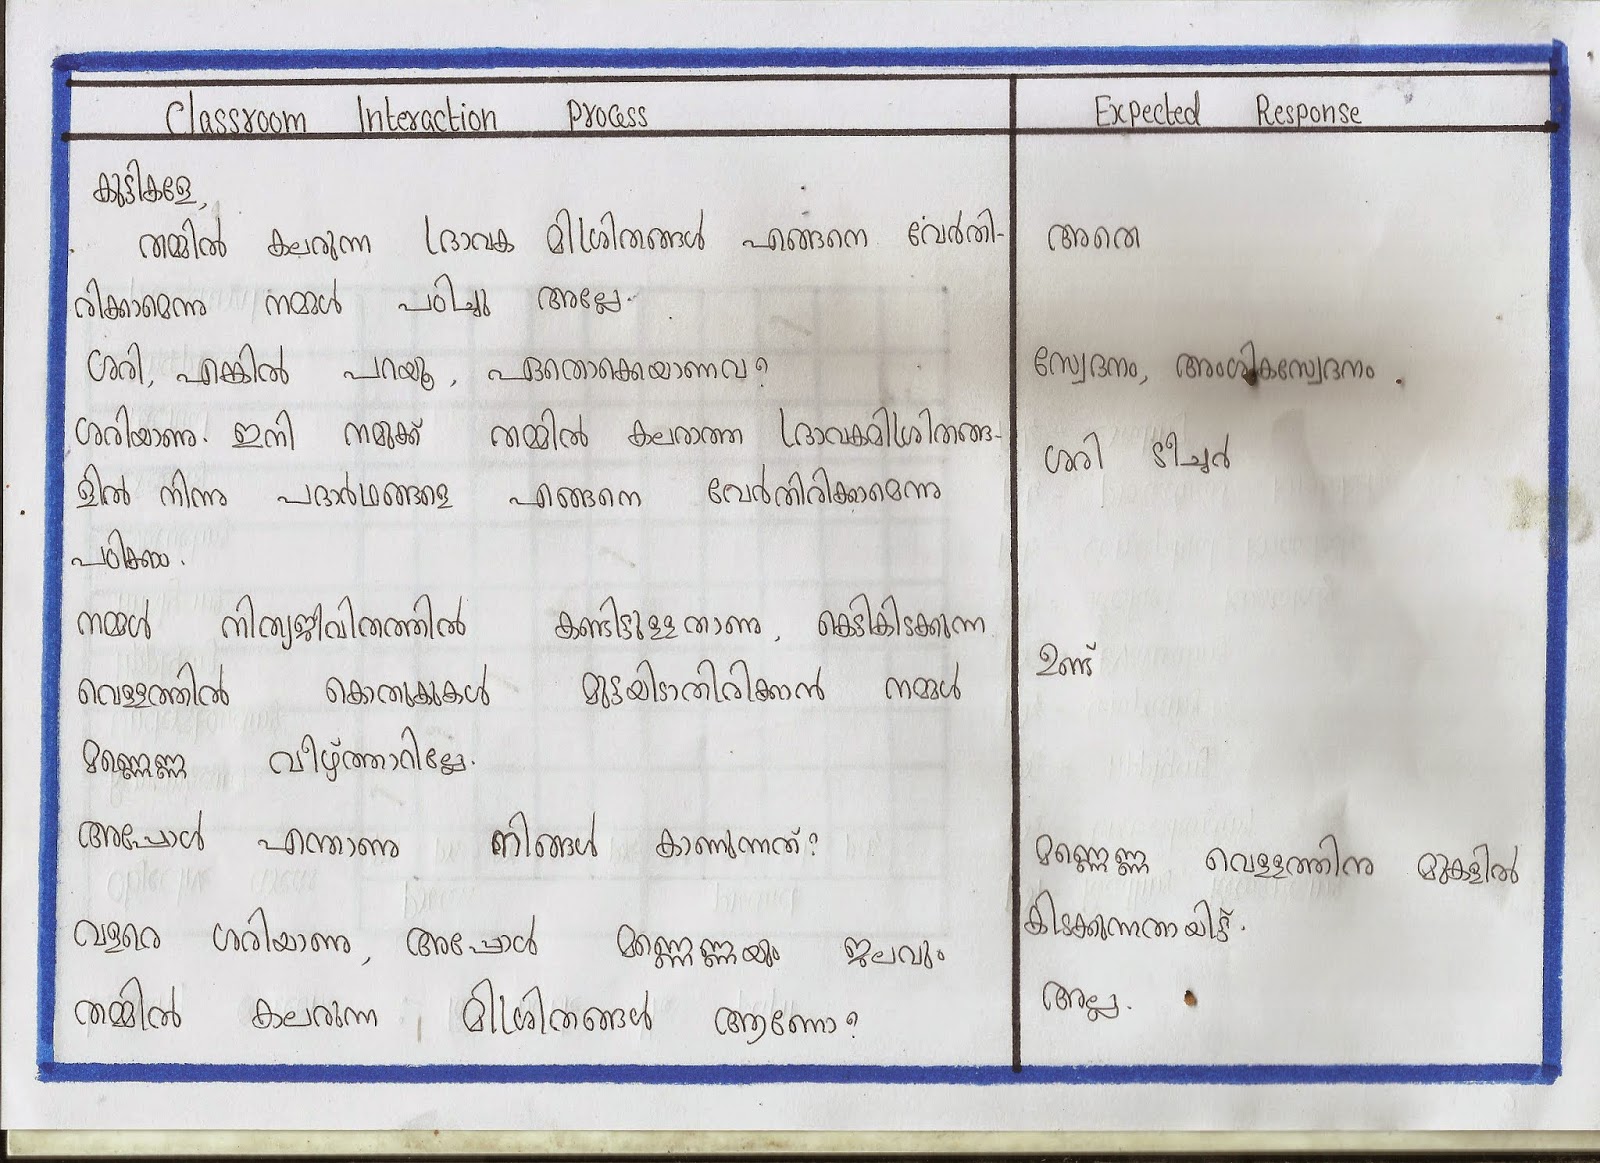 Classroom Interaction Process
Expected Response
കുട്ടികളേ,
തമ്മിൽ കലരുന്ന ദ്രാവക മിശ്രിതങ്ങൾ എങ്ങനെ വേർതി-
രിക്കാമെന്നു നമ്മൾ പഠിച്ചു അല്ലേ.
അതെ
ശരി, എങ്കിൽ പറയൂ, ഏതൊക്കെയാണവ?
സ്വേദനം, അംശികസ്വേദനം.
ശരിയാണു. ഇനി നമുക്ക് തമ്മിൽ കലരാത്ത ദ്രാവകമിശ്രിതങ്ങ-
ളിൽ നിന്നു പദാർഥങ്ങളെ എങ്ങനെ വേർതിരിക്കാമെന്നു
പഠിക്കാം.
ശരി ടീച്ചർ
നമ്മൾ നിത്യജീവിതത്തിൽ കണ്ടിട്ടുള്ളതാണു, കെട്ടികിടക്കുന്ന
വെള്ളത്തിൽ കൊതുകുകൾ മുട്ടയിടാതിരിക്കാൻ നമ്മൾ
മണ്ണെണ്ണ വീഴ്ത്താറില്ലേ.
ഉണ്ട്
അപ്പോൾ എന്താണു നിങ്ങൾ കാണുന്നത്?
മണ്ണെണ്ണ വെള്ളത്തിനു മുകളിൽ
കിടക്കുന്നതായിട്ട്.
വളരെ ശരിയാണു, അപ്പോൾ മണ്ണെണ്ണയും ജലവും
തമ്മിൽ കലരുന്ന മിശ്രിതങ്ങൾ ആണോ?
അല്ല.